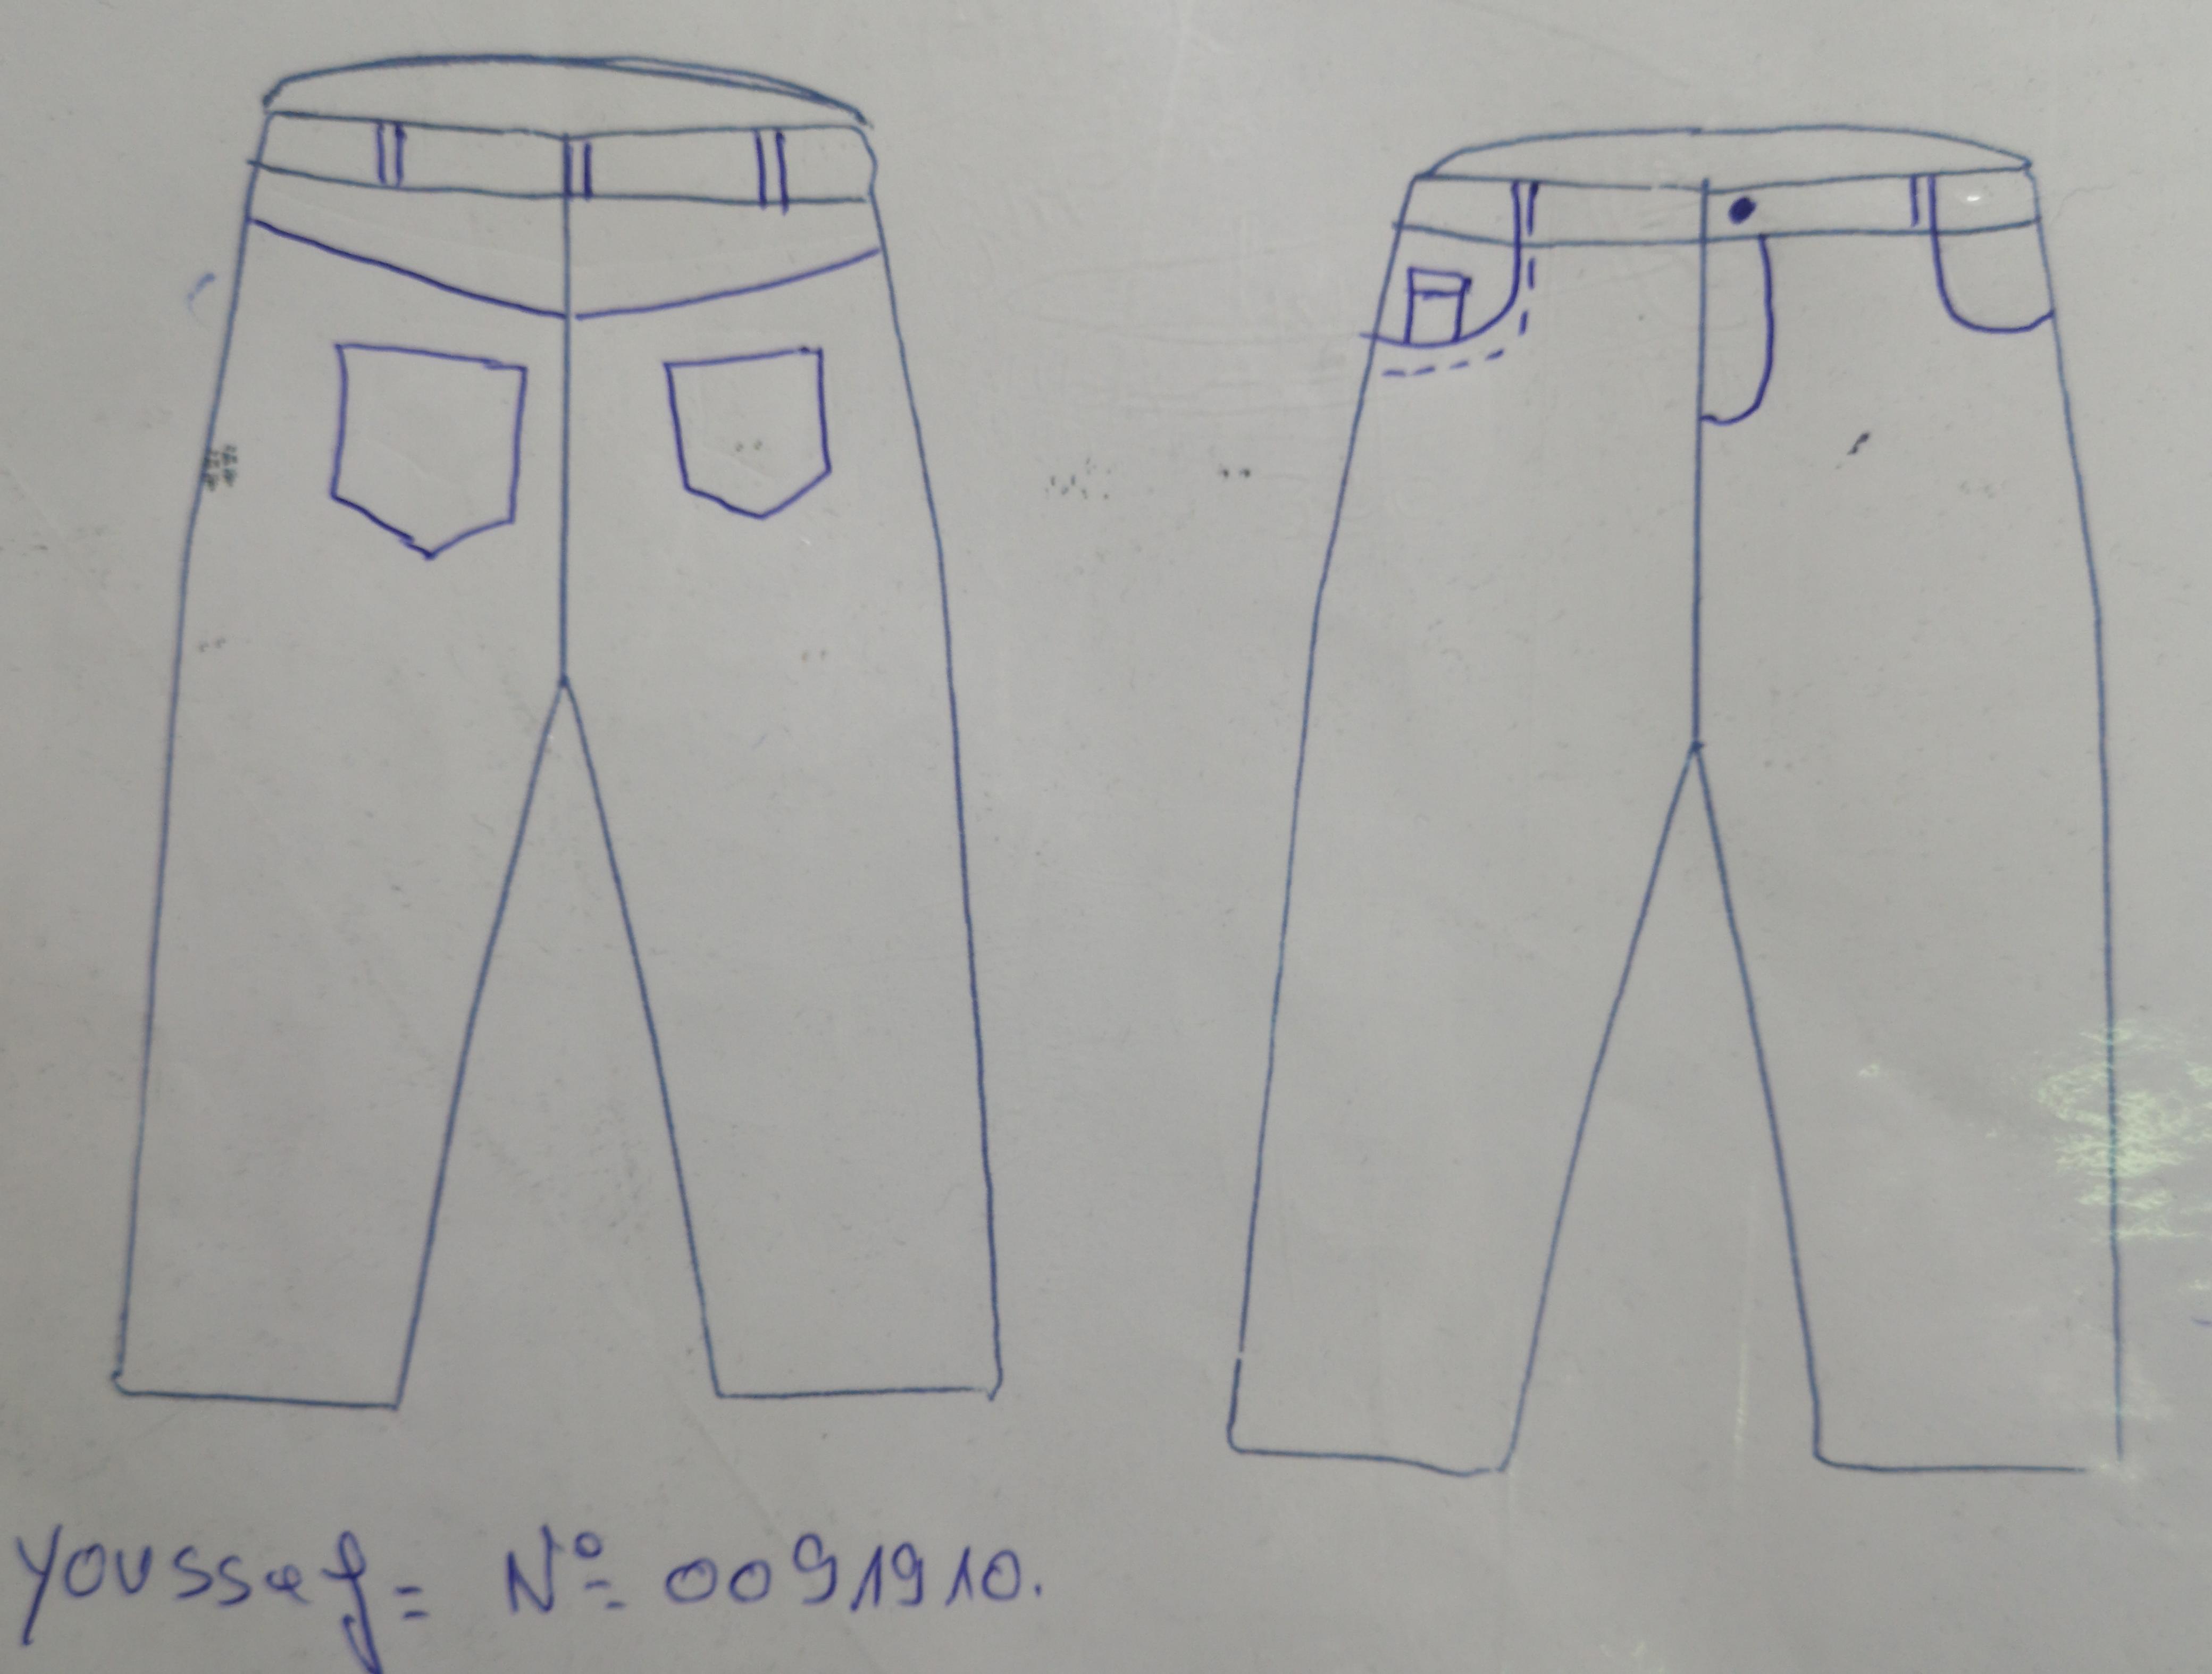 Youssef = N° 0091910.